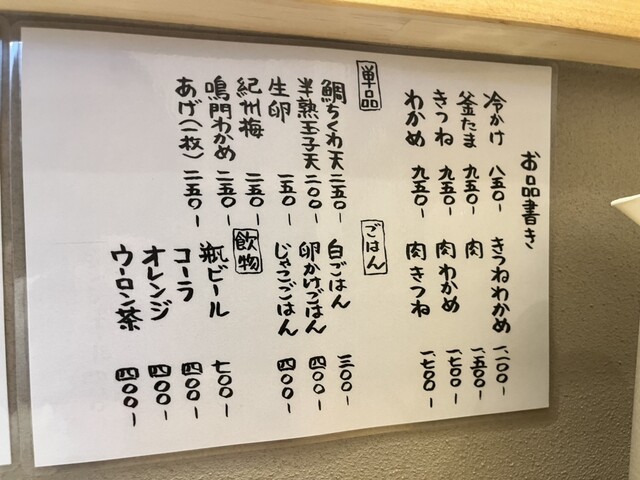 お品書き
冷かけ 八五〇-
釜たま 九五〇-
きつね 九五〇-
わかめ 九五〇-
きつねわかめ 一、一〇〇-
肉 一、五〇〇-
肉わかめ 一、七〇〇-
肉きつね 一、七〇〇-
単品
鯛ちくわ天 二五〇-
半熟玉子天 二〇〇-
生卵 一五〇-
紀州梅 二五〇-
鳴門わかめ 二五〇-
あげ(一枚) 二五〇-
ごはん
白ごはん 三〇〇-
卵かけごはん 四〇〇-
じゃこごはん 四〇〇-
飲物
瓶ビール 七〇〇-
コーラ 四〇〇-
オレンジ 四〇〇-
ウーロン茶 四〇〇-